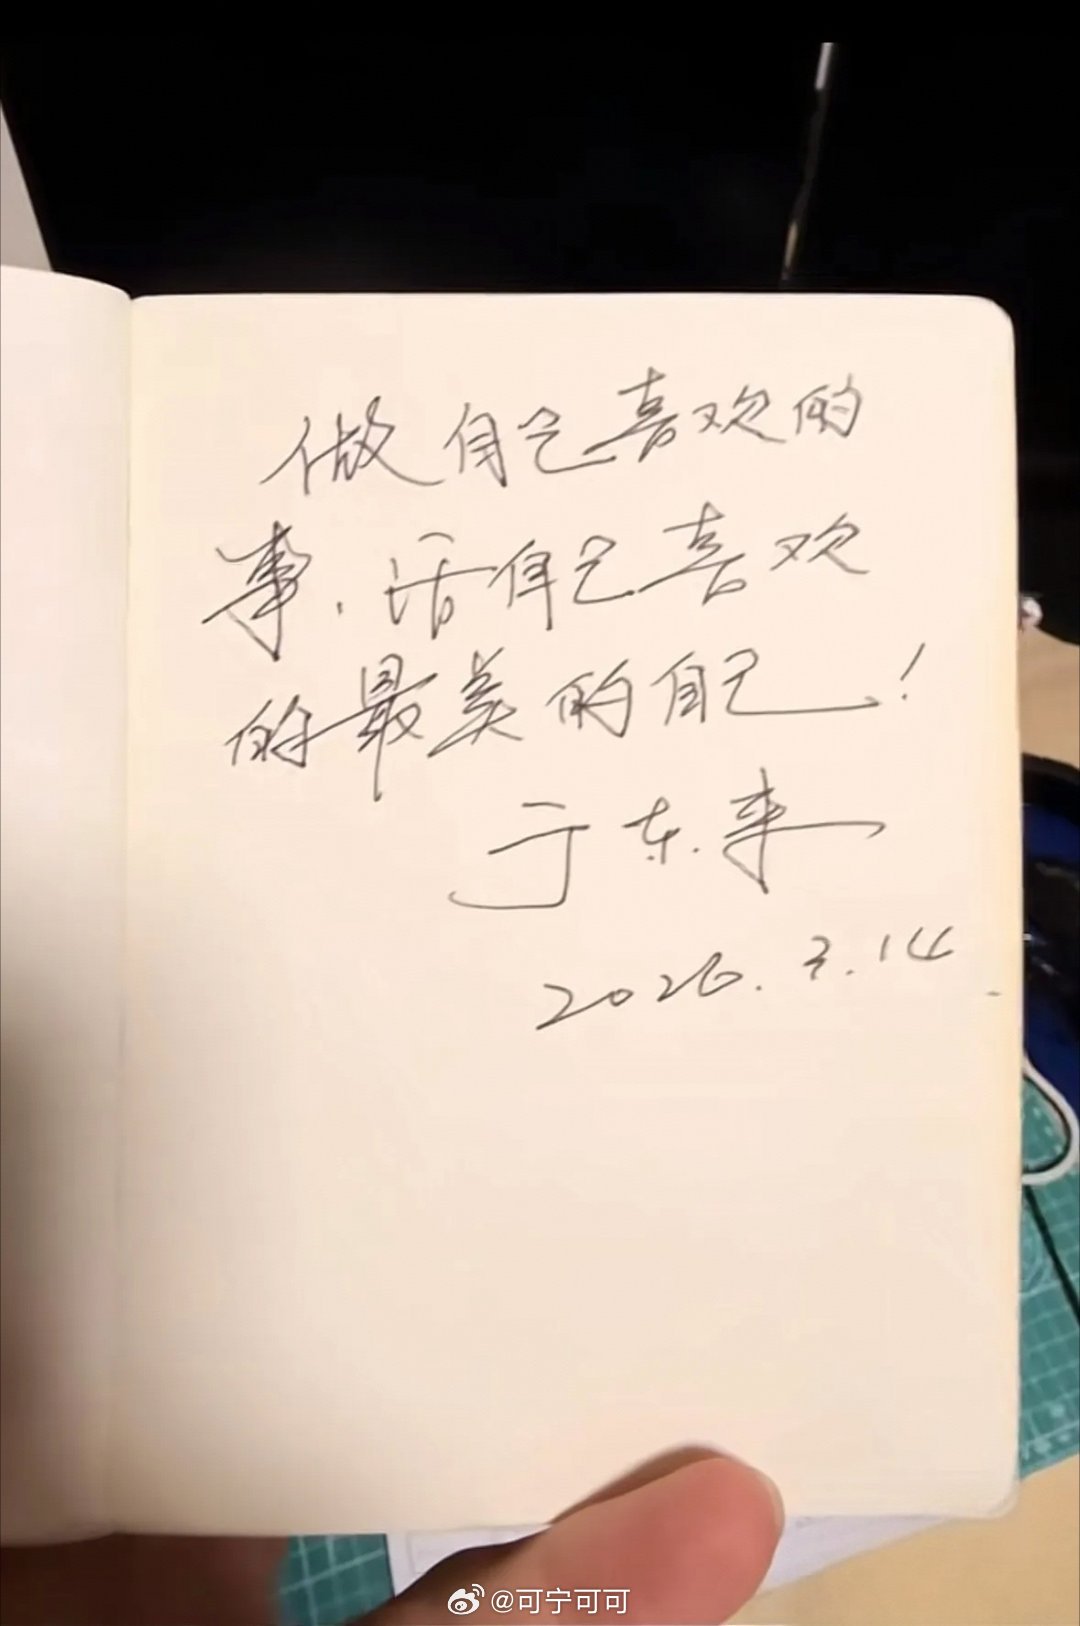 做自己喜欢的
事.活自己喜欢
的最美的自己!
于东来
2026.3.14
@可宁可可